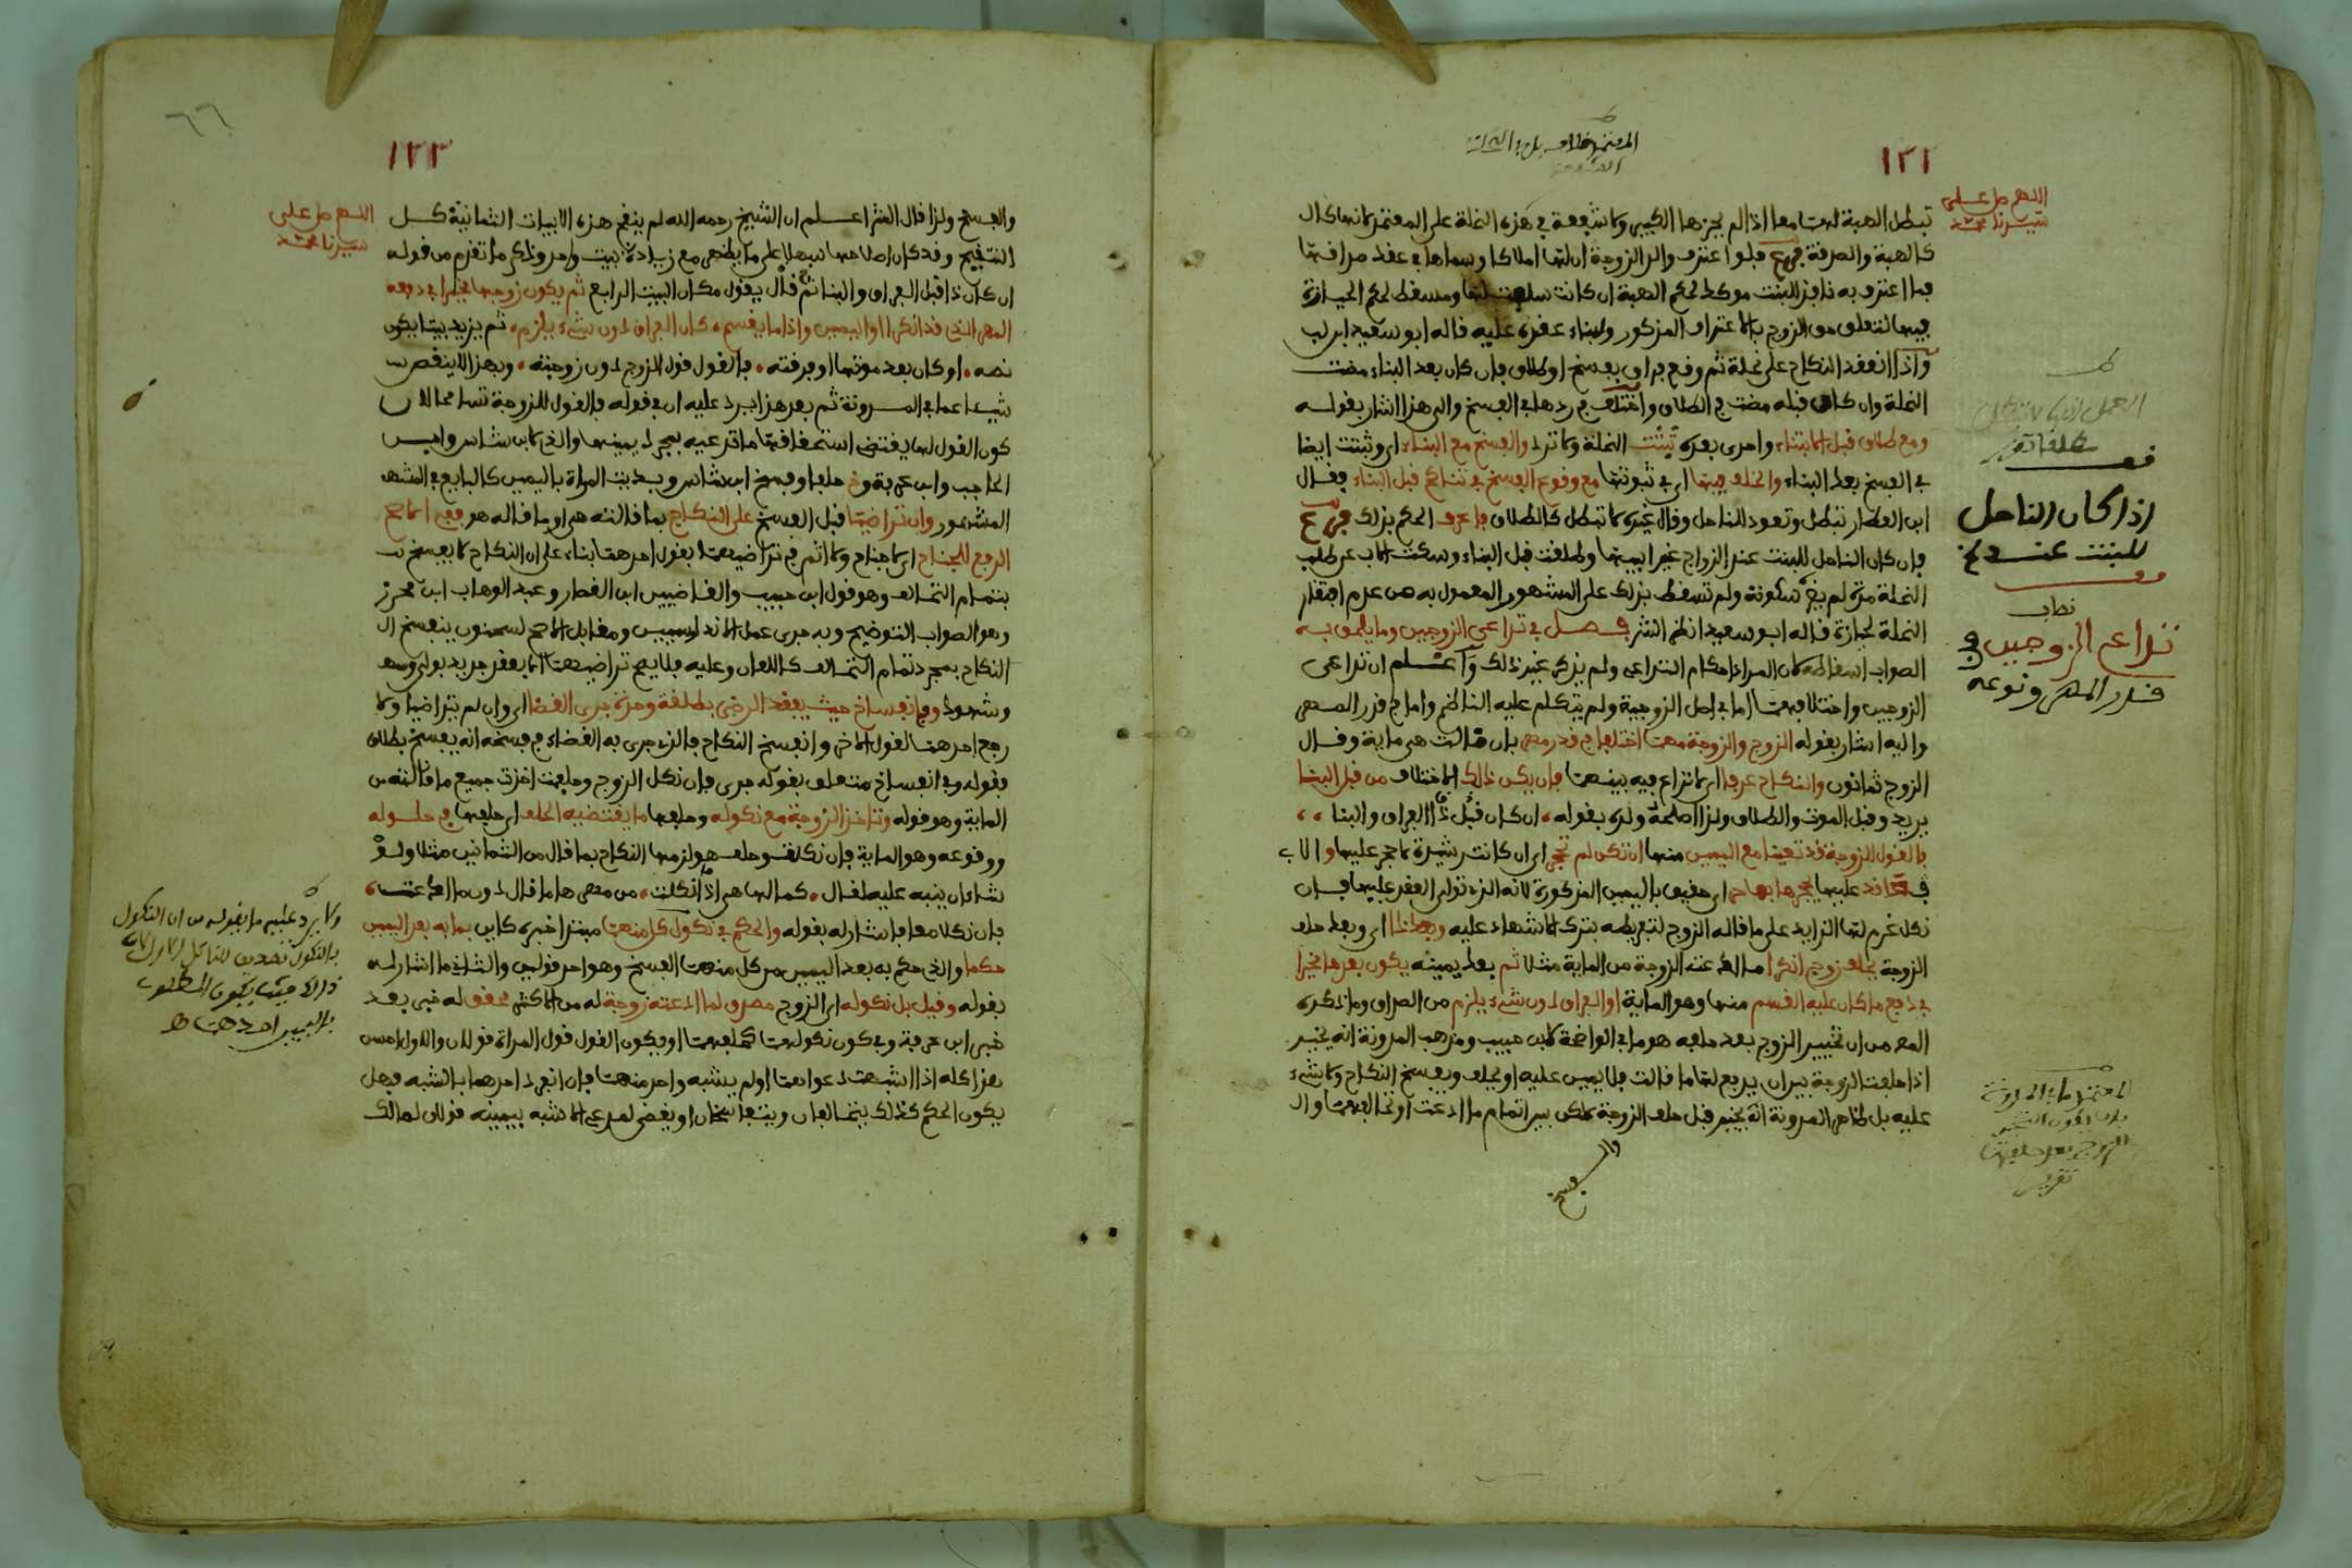 ١٢١
اللهم صل على
سيدنا محمد
تبطل الهبة لهما معا اذا لم يحزها الكبير ولا شفعة في هذه النحلة على المعتمد لانها كال
كالهبة والصدقة فرع فلو اعترف والد الزوجة ان لها املاكا وسماها في عقد صداقها
فما اعترف به نافذ للبنت موكد لحكم الهبة ان كانت سلمت لها ومسقط لحكم الحيازة
فيها لتعلق حق الزوج بالاعتراف المذكور ولبناء عقده عليه قاله ابو سعيد ابن لب
واذا انعقد النكاح على نحلة ثم وقع فراق بفسخ او طلاق فان كان بعد البناء مضت
النحلة وان كان قبله مضت في الطلاق واختلف في ردها في الفسخ والى هذا اشار بقوله
ومع طلاق قبل الابتناء واحرى بعده تثبت النحلة ولا ترد والفسخ مع البناء اي وثبتت ايضا
في الفسخ بعد البناء والخلف فيها اي في ثبوتها مع وقوع الفسخ في تناكح قبل البناء فقال
ابن العطار تبطل وتعود للناحل وقال غيره لا تبطل كالطلاق فاعرف الحكم بذلك فرع
فان كان الناحل للبنت عند الزواج غير ابيها وطلقت قبل البناء وسكت الاب عن طلب
النحلة مدة لم يضر سكوته ولم تسقط بذلك على المشهور المعمول به من عدم افتقار
النحلة لحيازة قاله ابو سعيد انظر الشرح فصل في تداعي الزوجين وما يلحق به
الصواب اسقاطه لان المراد احكام التداعي ولم يذكر غير ذلك واعلم ان تداعي
الزوجين واختلافهما اما في اصل الزوجية ولم يتكلم عليه الناظم واما في قدر المهر
واليه اشار بقوله الزوج والزوجة مهما اختلفا في قدر مهر بان قالت هي ماية وقال
الزوج ثمانون والنكاح عرفا اي لا نزاع فيه بينهما فان يكن ذاك الاختلاف من قبل البنا
يريد وقبل الموت والطلاق ولذا اصلحه ولده بقوله ، ان كان قبل ذا الفراق والبنا ،،
فالقول للزوجة قد تعينا مع اليمين منها ان تكن لم تحجر اي ان كانت رشيدة لا حجر عليها والاب
عليها لحجرها بها حر اي حقيق باليمين المذكورة لانه الذي تولى العقد عليها فان
نكل غرم لها الزايد على ما قاله الزوج لتفريطه بترك الاشهاد عليه وبعد ذا اي وبعد حلف
الزوجة يحلف زوج انكرا ما ادعته الزوجة من الماية مثلا ثم بعد يمينه يكون بعدها مخيرا
في دفع ما كان عليه القسم منها وهو الماية او الفراق دون شيء يلزم من الصداق وما ذكره
المص من ان تخيير الزوج بعد حلفه هو ما في الواضحة لابن حبيب ومذهب المدونة انه يخير
اذا حلفت الزوجة بين ان يدفع لها ما قالت فلا يمين عليه او يحلف ويفسخ النكاح ولا شيء
عليه بل ظاهر المدونة انه يخير قبل حلف الزوجة بين اتمام ما ادعت او تحالفهما وال
والفسخ
اذا كان الناحل
للبنت
تداعي الزوجين في
قدر المهر ونوعه
١٢٣
٦٦
اللهم صل على
سيدنا محمد
والفسخ ولذا قال الشر اعلم ان الشيخ رحمه الله لم ينقح هذه الابيات الثمانية كل
التنقيح وقد كان اصلاحها سهلا على ما يظهر مع زيادة بيت واحد وذكر ما تقدم من قوله
ان كان ذا قبل الفراق والبنا ثم قال يقول مكان البيت الرابع ثم يكون زوجها مخيرا في دفعه
المهر الذي قد انكرا او اليمين واذا ما يقسم ، كان الفراق دون شيء يلزم ، ثم يزيد بيتا يكون
نصه ، او كان بعد موتها او فرقته ، فالقول قول الزوج دون زوجته ، وبهذا لا ينقص
شيئا عما في المدونة ثم بعد هذا يرد عليه ان في قوله فالقول للزوجة تسامحا لان
كون القول لها يقتضي استحقاقها ما تدعيه بمجرد يمينها والذي لابن شاس وابن
الحاجب وابن عرفة وخ حلفا وفسخ ابن شاس وبديت المراة باليمين كالبايع في المشهـ
المشهور وان تراضيا قبل الفسخ على النكاح بما قالته هي او ما قاله هو ففي اللامحح
الرفع للجناح اي لا جناح ولا اثم في تراضيهما بقول احدهما بناء على ان النكاح لا يفسخ
بتمام التحالف وهو قول ابن حبيب والقاضيين ابن القصار وعبد الوهاب ابن محرز
وهو الصواب التوضيح وبه جرى عمل الاندلسيين ومقابل الاصح لسحنون ينفسخ ال
النكاح بمجرد تمام التحالف كاللعان وعليه فلا يصح تراضيهما الا بعقد جديد بولي ومهر
وشهود وفي انفساخ حيث يفقد الرضى بطلقة وحدة جرى القضا اي وان لم يتراضيا ولا
رجع احدهما لقول الاخر وانفسخ النكاح فالذي جرى به القضاء في فسخه انه يفسخ بطلاق
فقوله وفي انفساخ متعلق بقوله جرى فان نكل الزوج وحلفت اخذت جميع ما قالته من
الماية وهو قوله وتاخذ الزوجة مع نكوله وحلفها ما يقتضيه الحلف اي حلفها في حلوله
ووقوعه وهو الماية فان نكلت وحلف هو لزمها النكاح بما قال من الثمانين مثلا ولو
شاء ان ينبه عليه لقال ، كما لها هي اذا نكلت ، من مهرها ما قال دون ما ادعت ،
فان نكلا معا فاشار له بقوله والحكم في نكول كل منهما مبتدا خبره كاين بما به بعد اليمين
حكما والذي حكم به بعد اليمين من كل منهما الفسخ وهو احد قولين والثاني ما اشار له
بقوله وقيل بل نكوله اي الزوج مصدق لما ادعته زوجة له من الاكثر محقق له خبر بعد
خبر ابن عرفة وفي كون نكولهما كحلفهما او يكون القول قول المراة قولان والاول احسن
هذا كله اذا اشبهت دعواهما او لم يشبه واحد منهما فان انفرد احدهما بالشبه فهل
يكون الحكم كذلك يتحالفان ويتفاسخان او يقضى لمدعي الاشبه بيمينه قولان لمالك
ولا يرد عليه ما يقوله من ان النكول
بالنكول تصديق للناكل الاول لان
ذلك حيث يكون المطلوب
باليمين احدهما ط